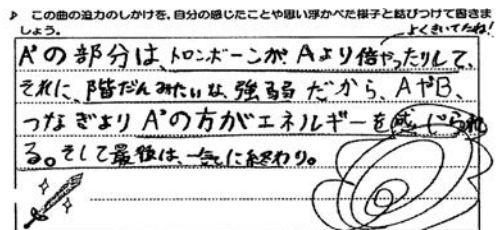 この曲の迫力のしかけを、自分の感じたことや思い浮かべた様子と結びつけて書きま
しょう。
よくきいてたね!
A'の部分は、トロンボーンが、Aより倍やったりして、
それに、階だんみたいな、強弱だから、AやB、
つなぎよりA'の方がエネルギーを感じられ
る。そして最後は、一気に終わり。